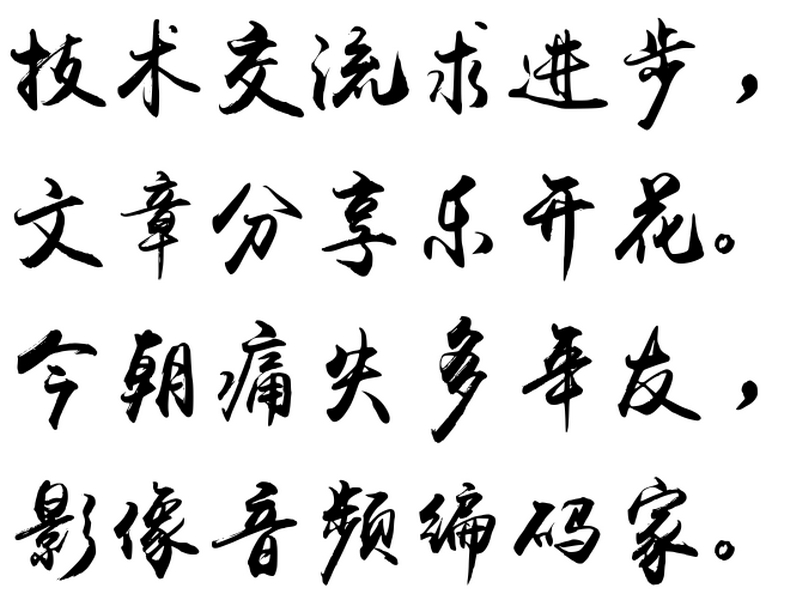 技术交流求进步，
文章分享乐开花。
今朝痛失多年友，
影像音频编码家。